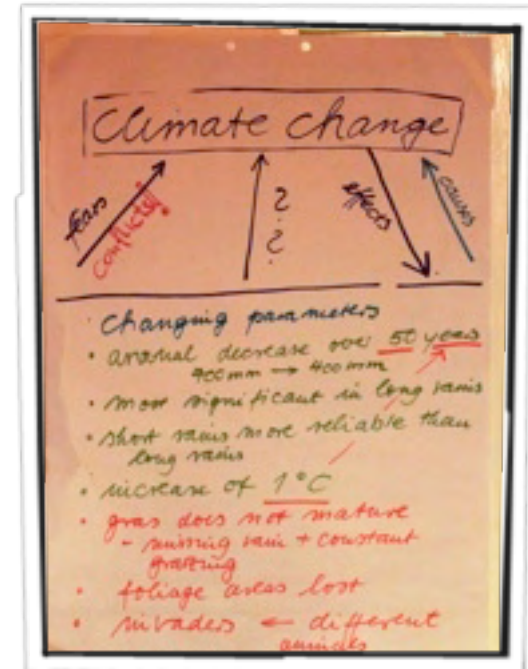 Climate change
fears
conflicts!
?
?
effects
causes
changing parameters
• annual decrease over 50 years
900mm → 400mm
• more significant in long rains
• short rains more reliable than
long rains
• increase of 1°C
• gras does not mature
- missing rain + constant
grazing
• foliage areas lost
• invaders ← different
animals